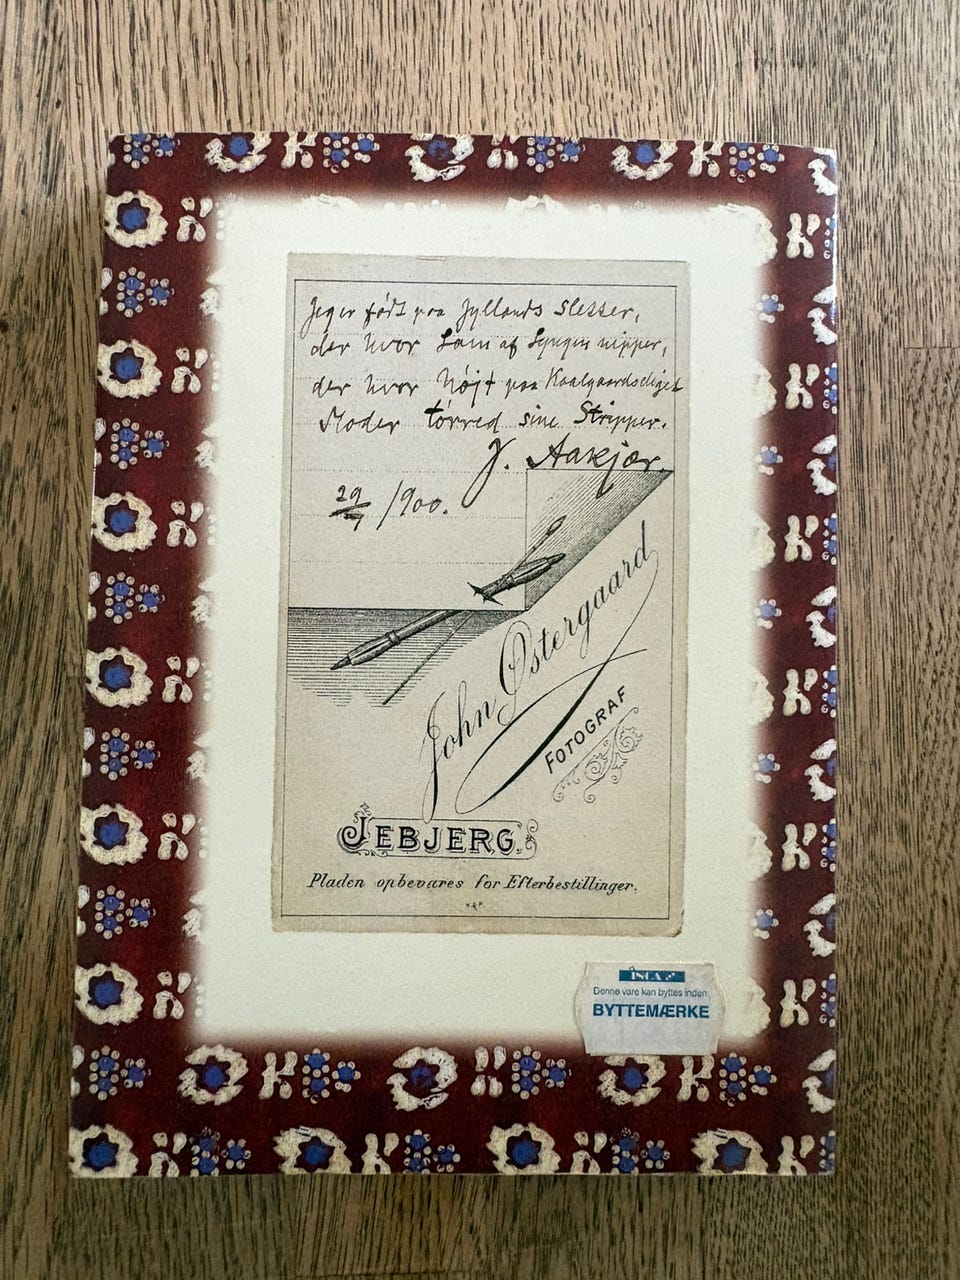 Jeg er født paa Jyllands Sletter,
der hvor Lam af Lyngen nipper,
der hvor højt paa Kaalgaardsdiget
Moder tørred sine Stripper.
J. Aakjær.
29/7 1900.
John Østergaard
FOTOGRAF
JEBJERG.
Pladen opbevares for Efterbestillinger.
INGA
Denne vare kan byttes inden:
BYTTEMÆRKE